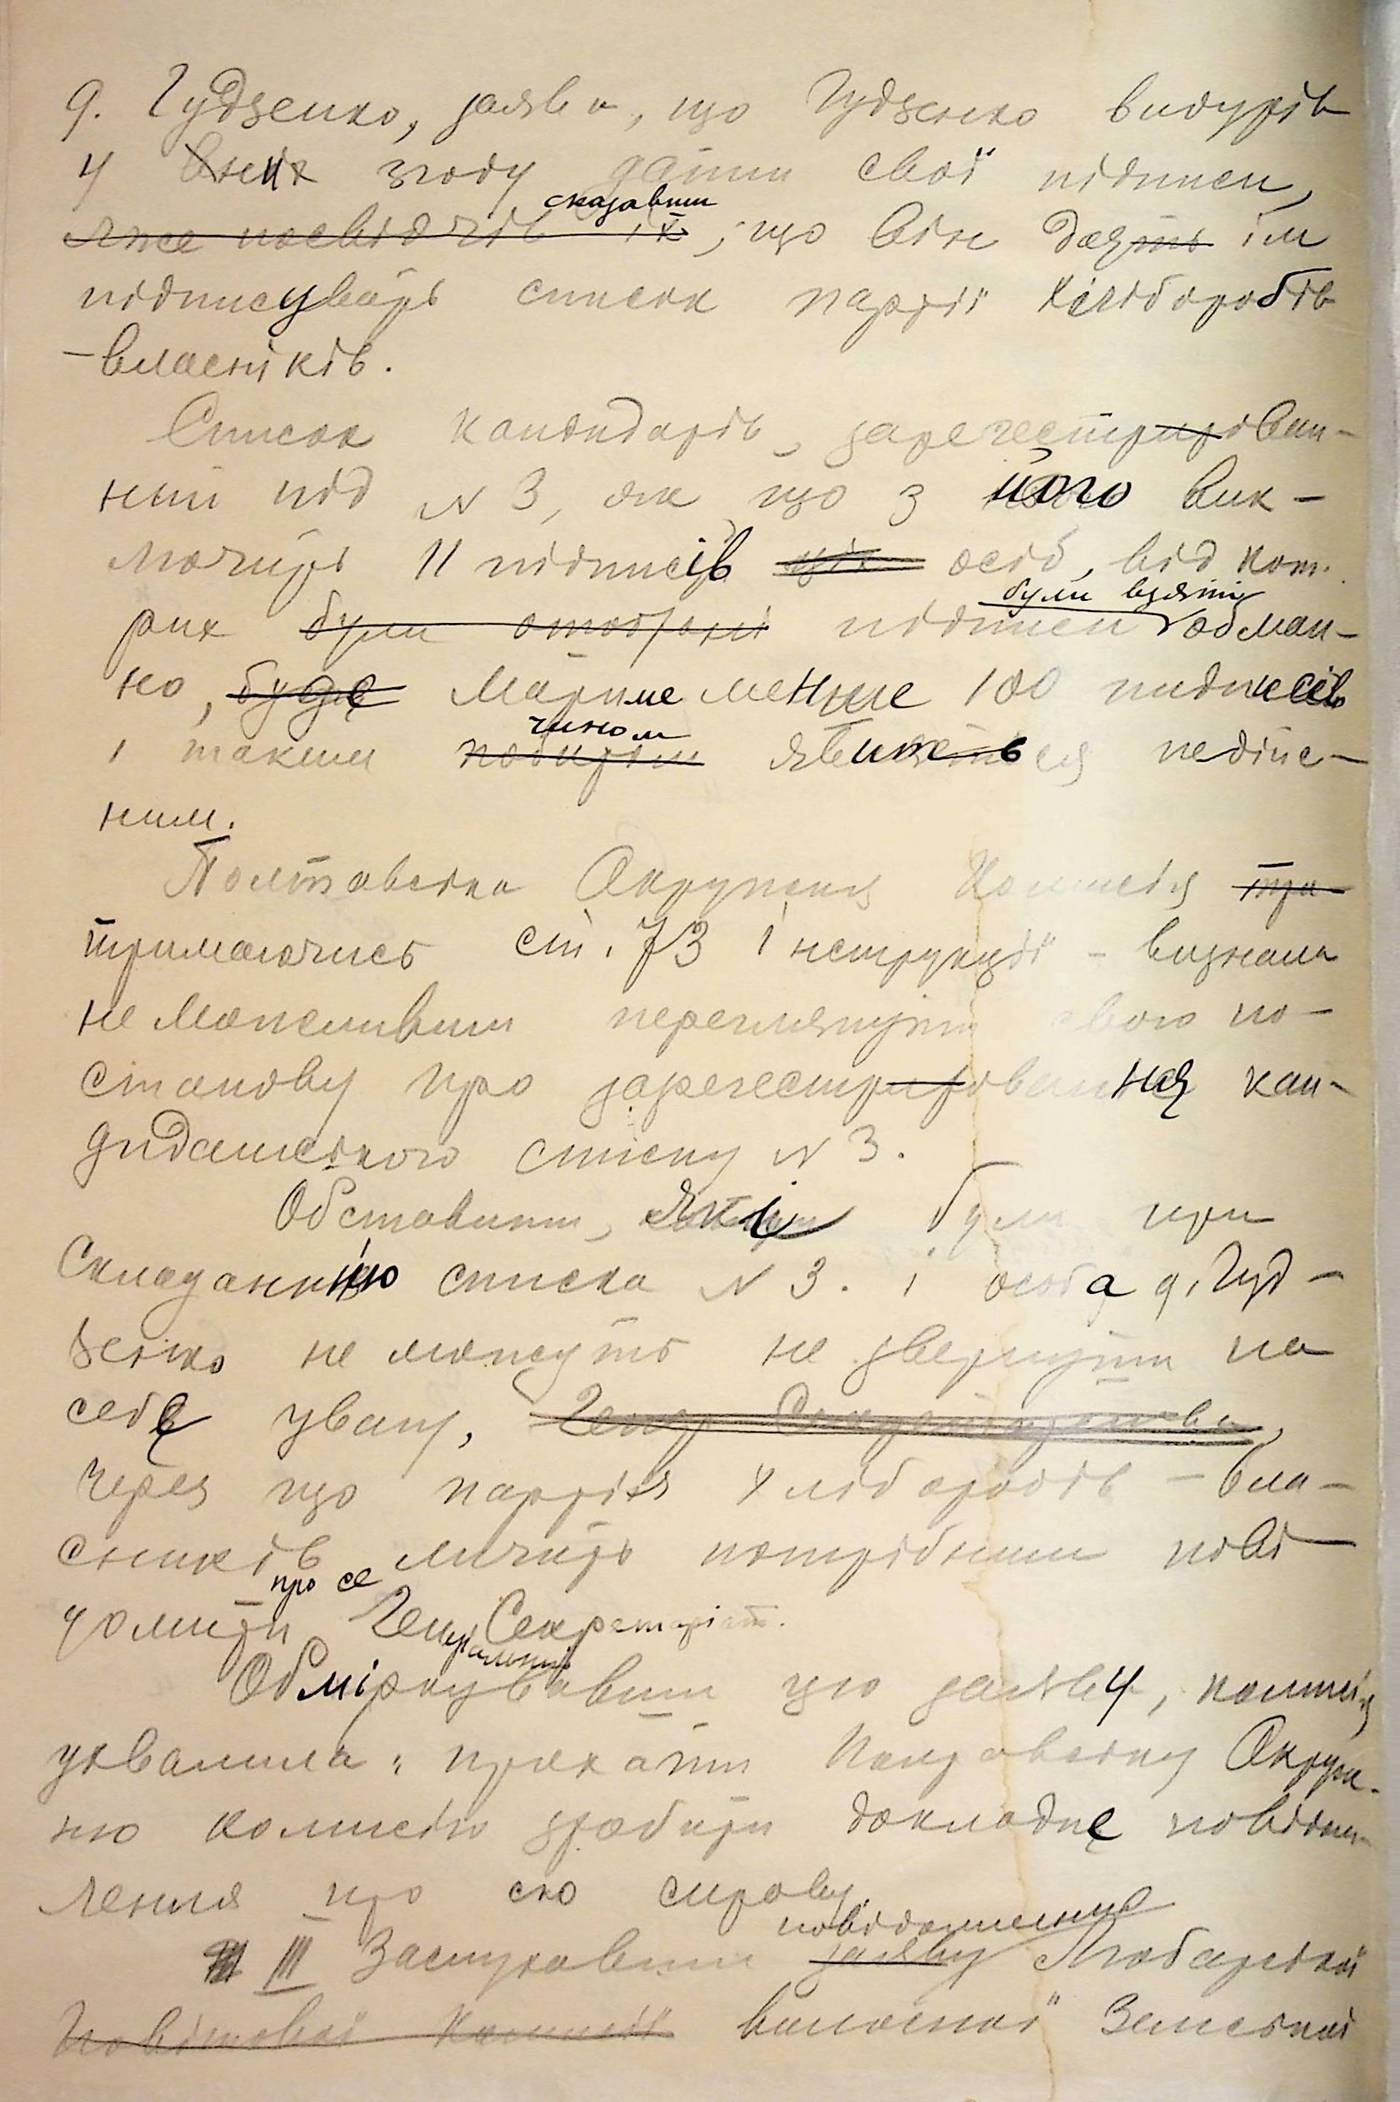 д. Гудзенко, заява, що Гудзенко видурів
у них згоду дати свої підписи,
сказавши
яке посвідчів їх, що він дає їм
підписувать список партії хліборобів
-власників.
Список кандидатів, зарегестрирован-
ний під N 3, як що з його вик-
лючить 11 підписів осіб, від кот.
були взяті
рих були отобрані підписи обман-
но, буде матиме меньше 100 підписів
чином
і таким побитом явиться недійс-
ним.
Полтавська Окружна Комісія
тримаючись ст. 73 Інструкції - визнала
не можливим переглянути свою по-
станову про зарегестрировання кан-
дидатського списку N 3.
Обставини, які були при
складанню списка N 3. і особа д. Гуд-
зенко не можуть не звернути на
себе увагу,
через що партія хліборобів - вла-
сників личить потрібним пові-
про се
домити Ген. Секретаріат.
Обміркувавши цю заяву, комісія
ухвалила: прохати Полтавську Окруж-
ню комісію зробити докладне повідом-
лення про сю справу.
повідомлення
III Заслухавши заяву Любарської
Повітової Комисії волосної Земської